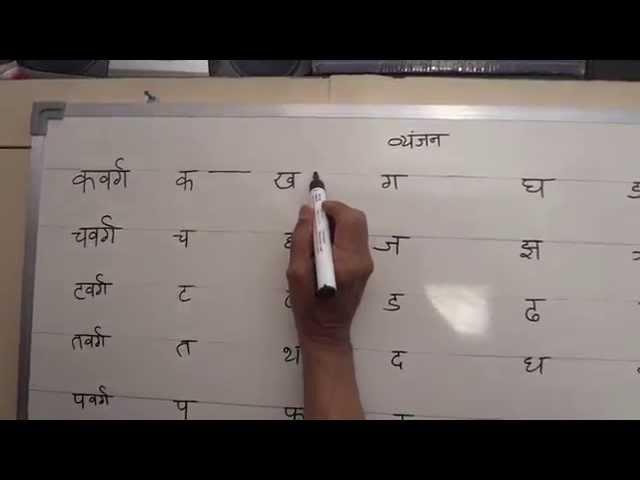 व्यंजन
कवर्ग क — ख ग घ
चवर्ग च ज झ
टवर्ग ट ड ढ
तवर्ग त थ द ध
पवर्ग प फ